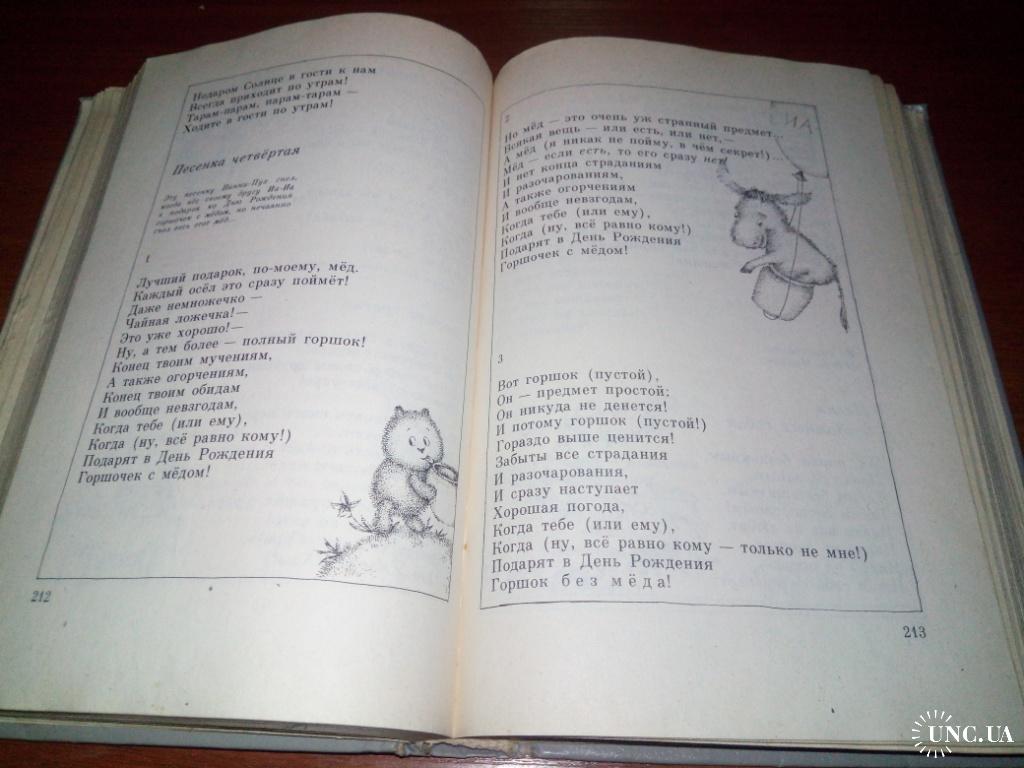 Подаром Солнце в гости к нам
Всегда приходит по утрам!
Тарам-парам, парам-тарам —
Ходите в гости по утрам!
Песенка четвёртая
Эту песенку Винни-Пух спел,
когда нёс своему другу Иа-Иа
в подарок ко Дню Рождения
горшочек с мёдом, но нечаянно
съел весь этот мёд...
1
Лучший подарок, по-моему, мёд.
Каждый осёл это сразу поймёт!
Даже немножечко —
Чайная ложечка!—
Это уже хорошо!—
Ну, а тем более — полный горшок!
Конец твоим мучениям,
А также огорчениям,
Конец твоим обидам
И вообще невзгодам,
Когда тебе (или ему),
Когда (ну, всё равно кому!)
Подарят в День Рождения
Горшочек с мёдом!
212
2
Но мёд — это очень уж странный предмет...
Всякая вещь — или есть, или нет,—
А мёд (я никак не пойму, в чём секрет!)...
Мёд — если есть, то его сразу нет!
И нет конца страданиям
И разочарованиям,
А также огорчениям
И вообще невзгодам,
Когда тебе (или ему),
Когда (ну, всё равно кому!)
Подарят в День Рождения
Горшочек с мёдом!
3
Вот горшок (пустой),
Он — предмет простой;
Он никуда не денется!
И потому горшок (пустой!)
Гораздо выше ценится!
Забыты все страдания
И разочарования,
И сразу наступает
Хорошая погода,
Когда тебе (или ему),
Когда (ну, всё равно кому — только не мне!)
Подарят в День Рождения
Горшок без мёда!
213
UNC.UA